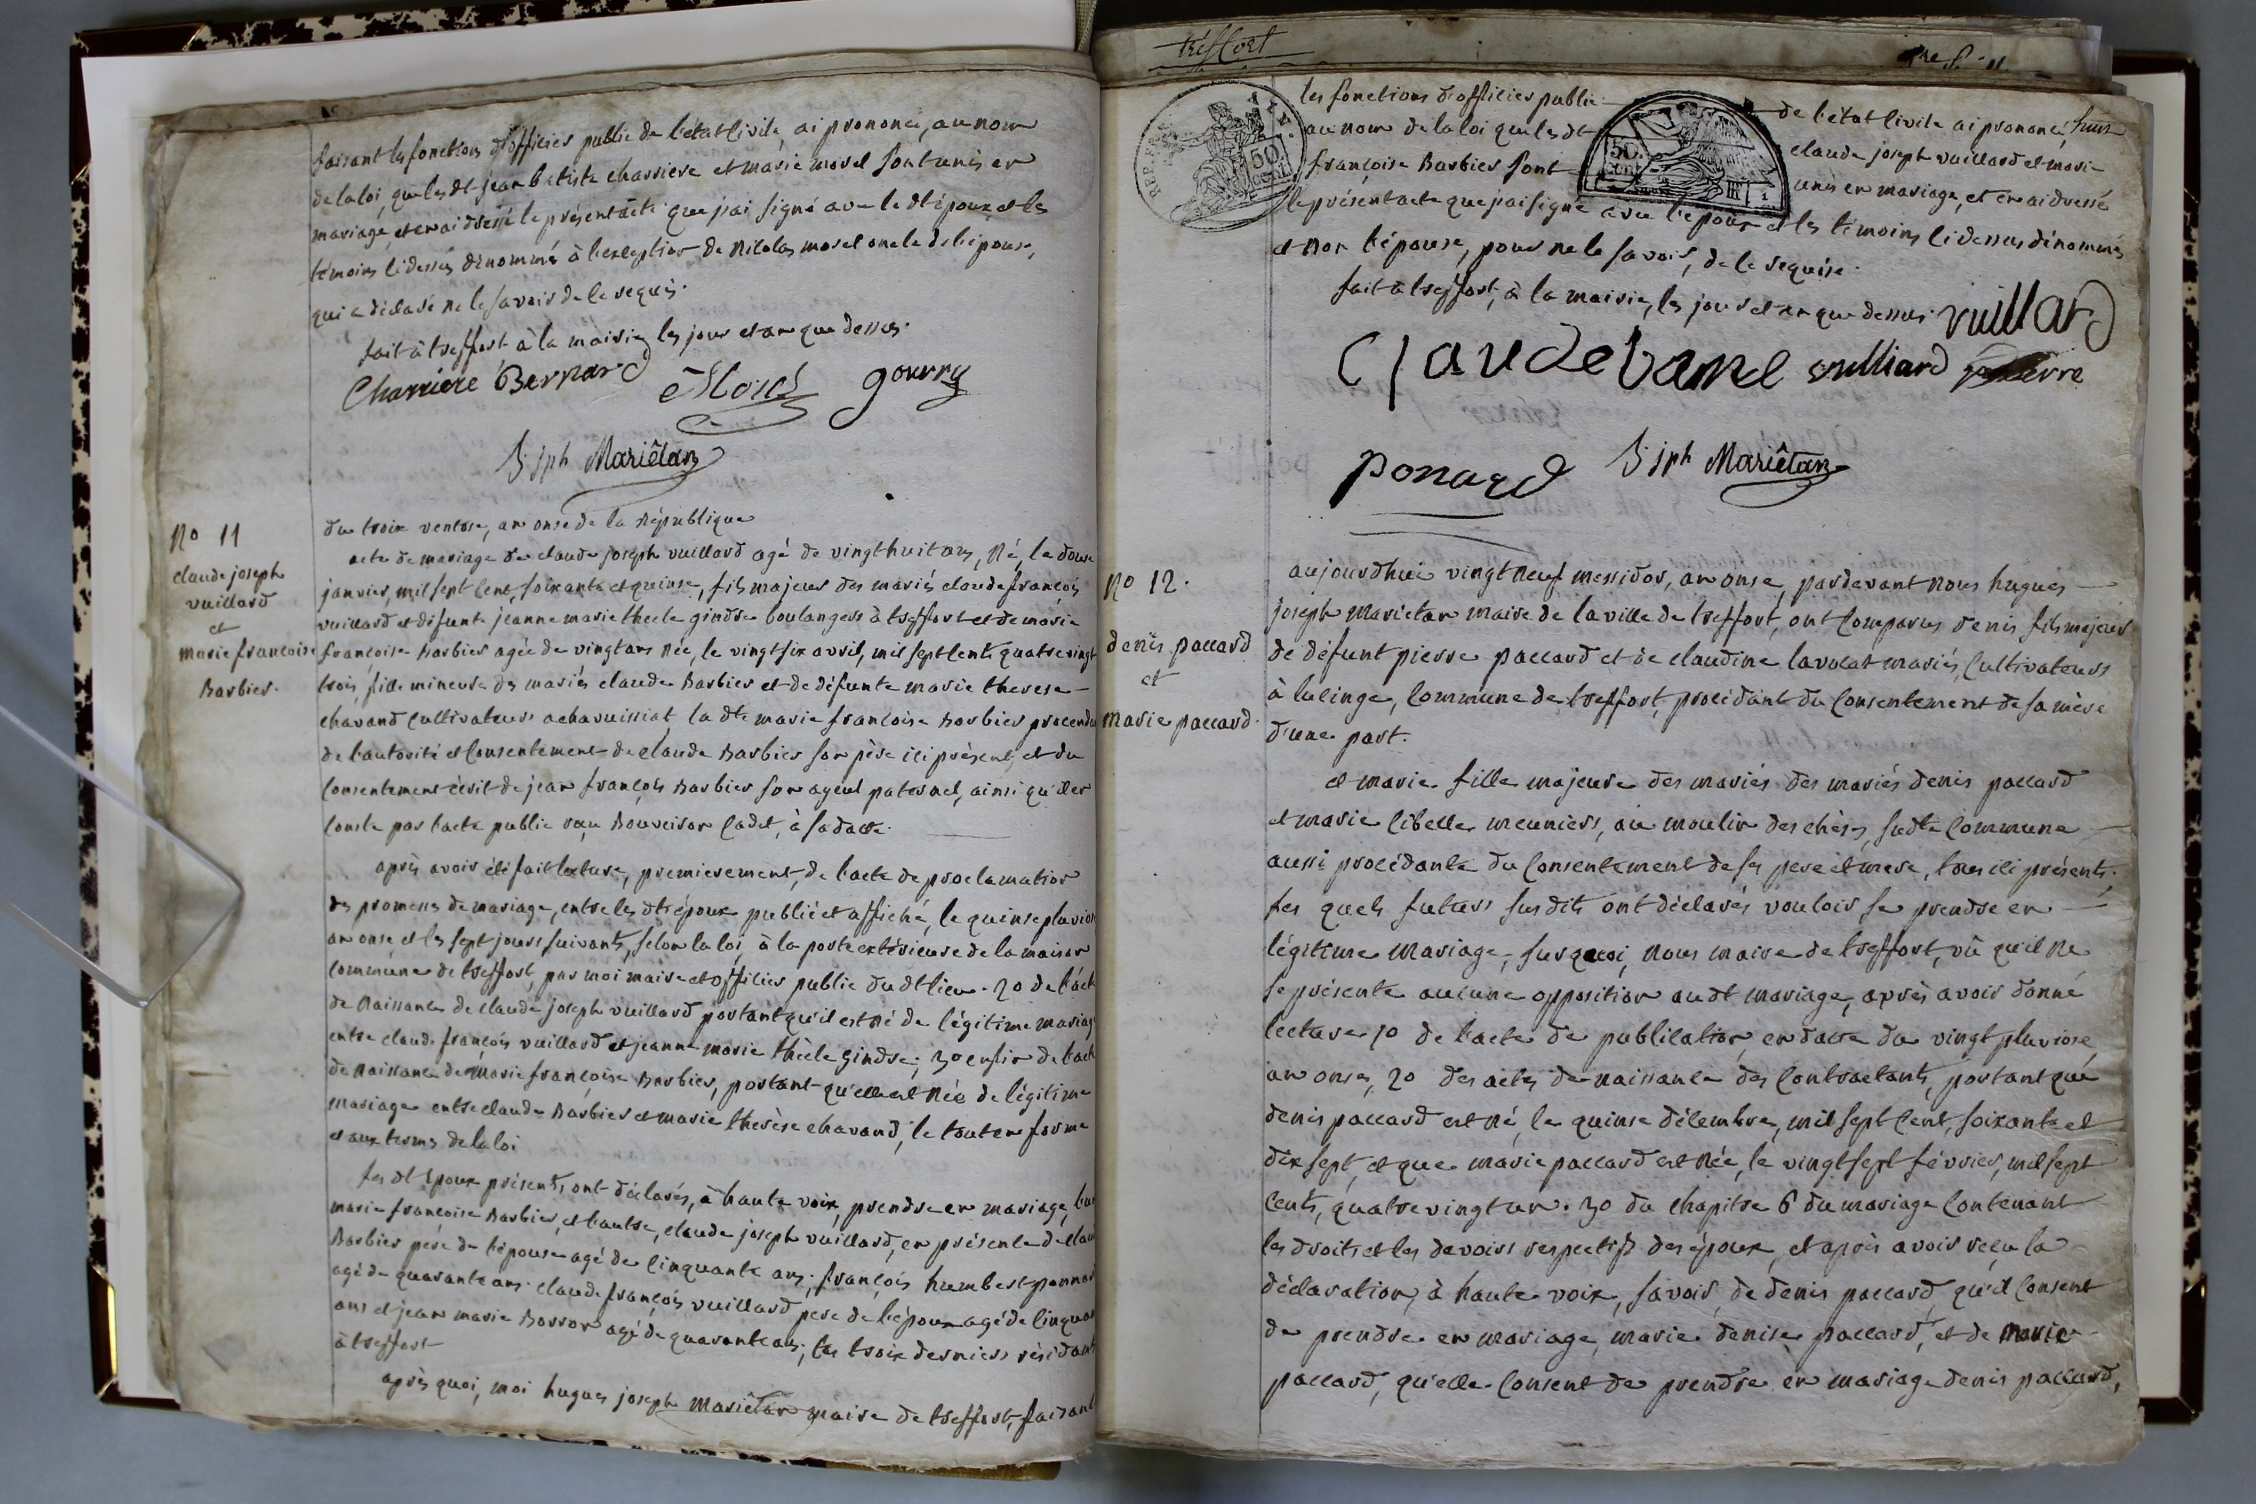 faisant les fonctions d'officier public de l'état civile, ai prononcé, au nom
de la loi, que les dt jean batiste charriere et marie morel sont unis en
mariage, et en ai dressé le présent acte que j'ai signé avec le dt époux et les
témoins ci dessus dénommés à l'exception de Nicolas morel oncle de l'épouse,
qui a déclaré ne le savoir de ce requis.
fait à treffort à la mairie, les jour et an que dessus.
Charriere Bernard gourry
h jph Mariêtan
No 11
claude joseph
vuillard
et
marie francoise
Barbier.
du trois ventose, an onse de la République
acte de mariage de claude joseph vuillard agé de vingthuit ans, Né, le douse
janvier, mil sept cent, soixante et quinse, fils majeur des mariés claude françois
vuillard et défunte jeanne marie thecle gindre boulangers à treffort et de marie
françoise Barbier agée de vingt ans Née, le vingt six avril, mil sept cents quatre vingt
trois, fille mineure des mariés claude Barbier et de défunte marie therese
chavand cultivateurs a chavuissiat, la dte marie francoise Barbier procendu
de l'autorité et consentement de claude Barbier son père ici présent, et du
consentement écrit de jean françois Barbier son ageul paternel, ainsi qu'il en
conste par l'acte public reçu Bouveiron Cadet, à sa datte.
après avoir été fait lecture, premierement, de l'acte de proclamation
des promesses de mariage, entre les dts époux publié et affiché, le quinse pluvios
an onse et les sept jours suivants, selon la loi, à la porte extérieure de la maison
commune de treffort, par moi maire et officier public du dt lieu. 2o de l'act
de Naissance de claude joseph vuillard portant qu'il est Né de légitime mariag
entre claude françois vuillard et jeanne marie thècle gindre; 3o enfin de l'act
de Naissance de marie françoise Barbier, portant qu'elle est Née de légitime
mariage entre claude Barbier et marie therèse chavand, le tout en forme
et aux termes de la loi
les dt époux présents, ont déclarés, à haute voix, prendre en mariage, l'un
marie francoise Barbier, et l'autre, claude joseph vuillard, en présence de clau
Barbier père de l'épouse agé de cinquante ans; françois humbert ponnar
agé de quarante ans. claude françois vuillard pere de l'époux agé de cinquan
ans et jean marie Borron agé de quarante ans; les trois derniers résidant
à treffort
après quoi, moi hugues joseph Mariêtan maire de treffort, faisant
tréffort
les fonctions d'officier public de l'état civile ai prononcé,
au nom de la loi que les dt claude joseph vuillard et marie
françoise Barbier sont unis en mariage, et en ai dressé
50 cent.
50 cent
le présent acte que j'ai signé avec l'époux et les témoins ci dessus dénommés
et non l'épouse, pour ne le savoir, de ce requise.
fait à treffort, à la mairie, les jour et an que dessus. vuillard
vulliard
ponard h jph Mariêtan
No 12.
denis paccard
et
marie paccard.
aujourdhui vingt neuf messidor, an onse, pardevant Nous hugues
joseph Mariétan maire de la ville de treffort, ont comparus denis fils majeur
de défunt pierre paccard et de claudine lavocat mariés, cultivateurs
à lucinge, commune de treffort, procédant du consentement de sa mère
d'une part.
et marie fille majeure des mariés des mariés denis paccard
et marie cibelle meuniers, au moulin des chéses, sudte commune
aussi procédante du consentement de ses pere et mere, tous ici présents.
les quels futurs susdits ont déclarés vouloir se prendre en
légitime Mariage, sur quoi, Nous maire de treffort, vû qu'il ne
se présente aucune opposition au dt mariage, après avoir donné
lecture 1o de l'acte de publication, en datte du vingt pluviose
an onse, 2o des actes de naissance des contractants, portant que
denis paccard est Né, le quinse décembre, mil sept cent, soixante et
dix sept, et que marie paccard est Née, le vingt sept février, mil sept
cents, quatre vingt un. 3o du chapitre 6 du mariage contenant
les droits et les devoirs respectifs des époux, et après avoir reçu la
déclaration, à haute voix, savoir, de denis paccard, qu'il consent
de prendre en mariage, marie denise paccard, et de marie
paccard, qu'elle consent de prendre en mariage denis paccard,